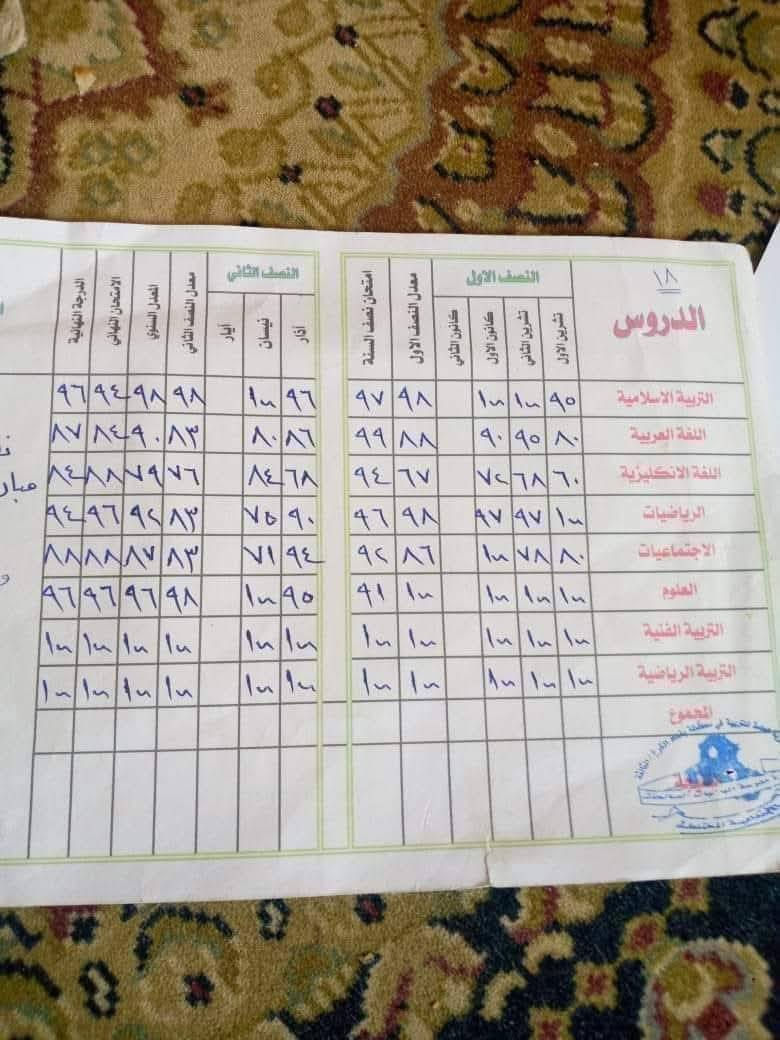 ١٨
الدروس
النصف الاول
النصف الثاني
تشرين الاول تشرين الثاني كانون الاول كانون الثاني معدل النصف الاول امتحان نصف السنة آذار نيسان أيار معدل النصف الثاني المعدل السنوي الامتحان النهائي الدرجة النهائية
التربية الاسلامية ٩٥ ١٠٠ ١٠٠ ٩٨ ٩٧ ٩٦ ١٠٠ ٩٨ ٩٨ ٩٤ ٩٦
اللغة العربية ٨٠ ٩٥ ٩٠ ٨٨ ٩٩ ٨٦ ٨٠ ٨٣ ٩٠ ٨٤ ٨٧
اللغة الانكليزية ٦٠ ٦٨ ٧٢ ٦٧ ٩٤ ٦٨ ٨٤ ٧٦ ٧٩ ٨٨ ٨٤
الرياضيات ١٠٠ ٩٧ ٩٧ ٩٨ ٩٦ ٩٠ ٧٥ ٨٣ ٩٢ ٩٦ ٩٤
الاجتماعيات ٨٠ ٧٨ ١٠٠ ٨٦ ٩٢ ٩٤ ٧١ ٨٣ ٨٧ ٨٨ ٨٨
العلوم ١٠٠ ١٠٠ ١٠٠ ١٠٠ ٩١ ٩٥ ١٠٠ ٩٨ ٩٦ ٩٦ ٩٦
التربية الفنية ١٠٠ ١٠٠ ١٠٠ ١٠٠ ١٠٠ ١٠٠ ١٠٠ ١٠٠ ١٠٠ ١٠٠ ١٠٠
التربية الرياضية ١٠٠ ١٠٠ ١٠٠ ١٠٠ ١٠٠ ١٠٠ ١٠٠ ١٠٠ ١٠٠ ١٠٠ ١٠٠
المجموع